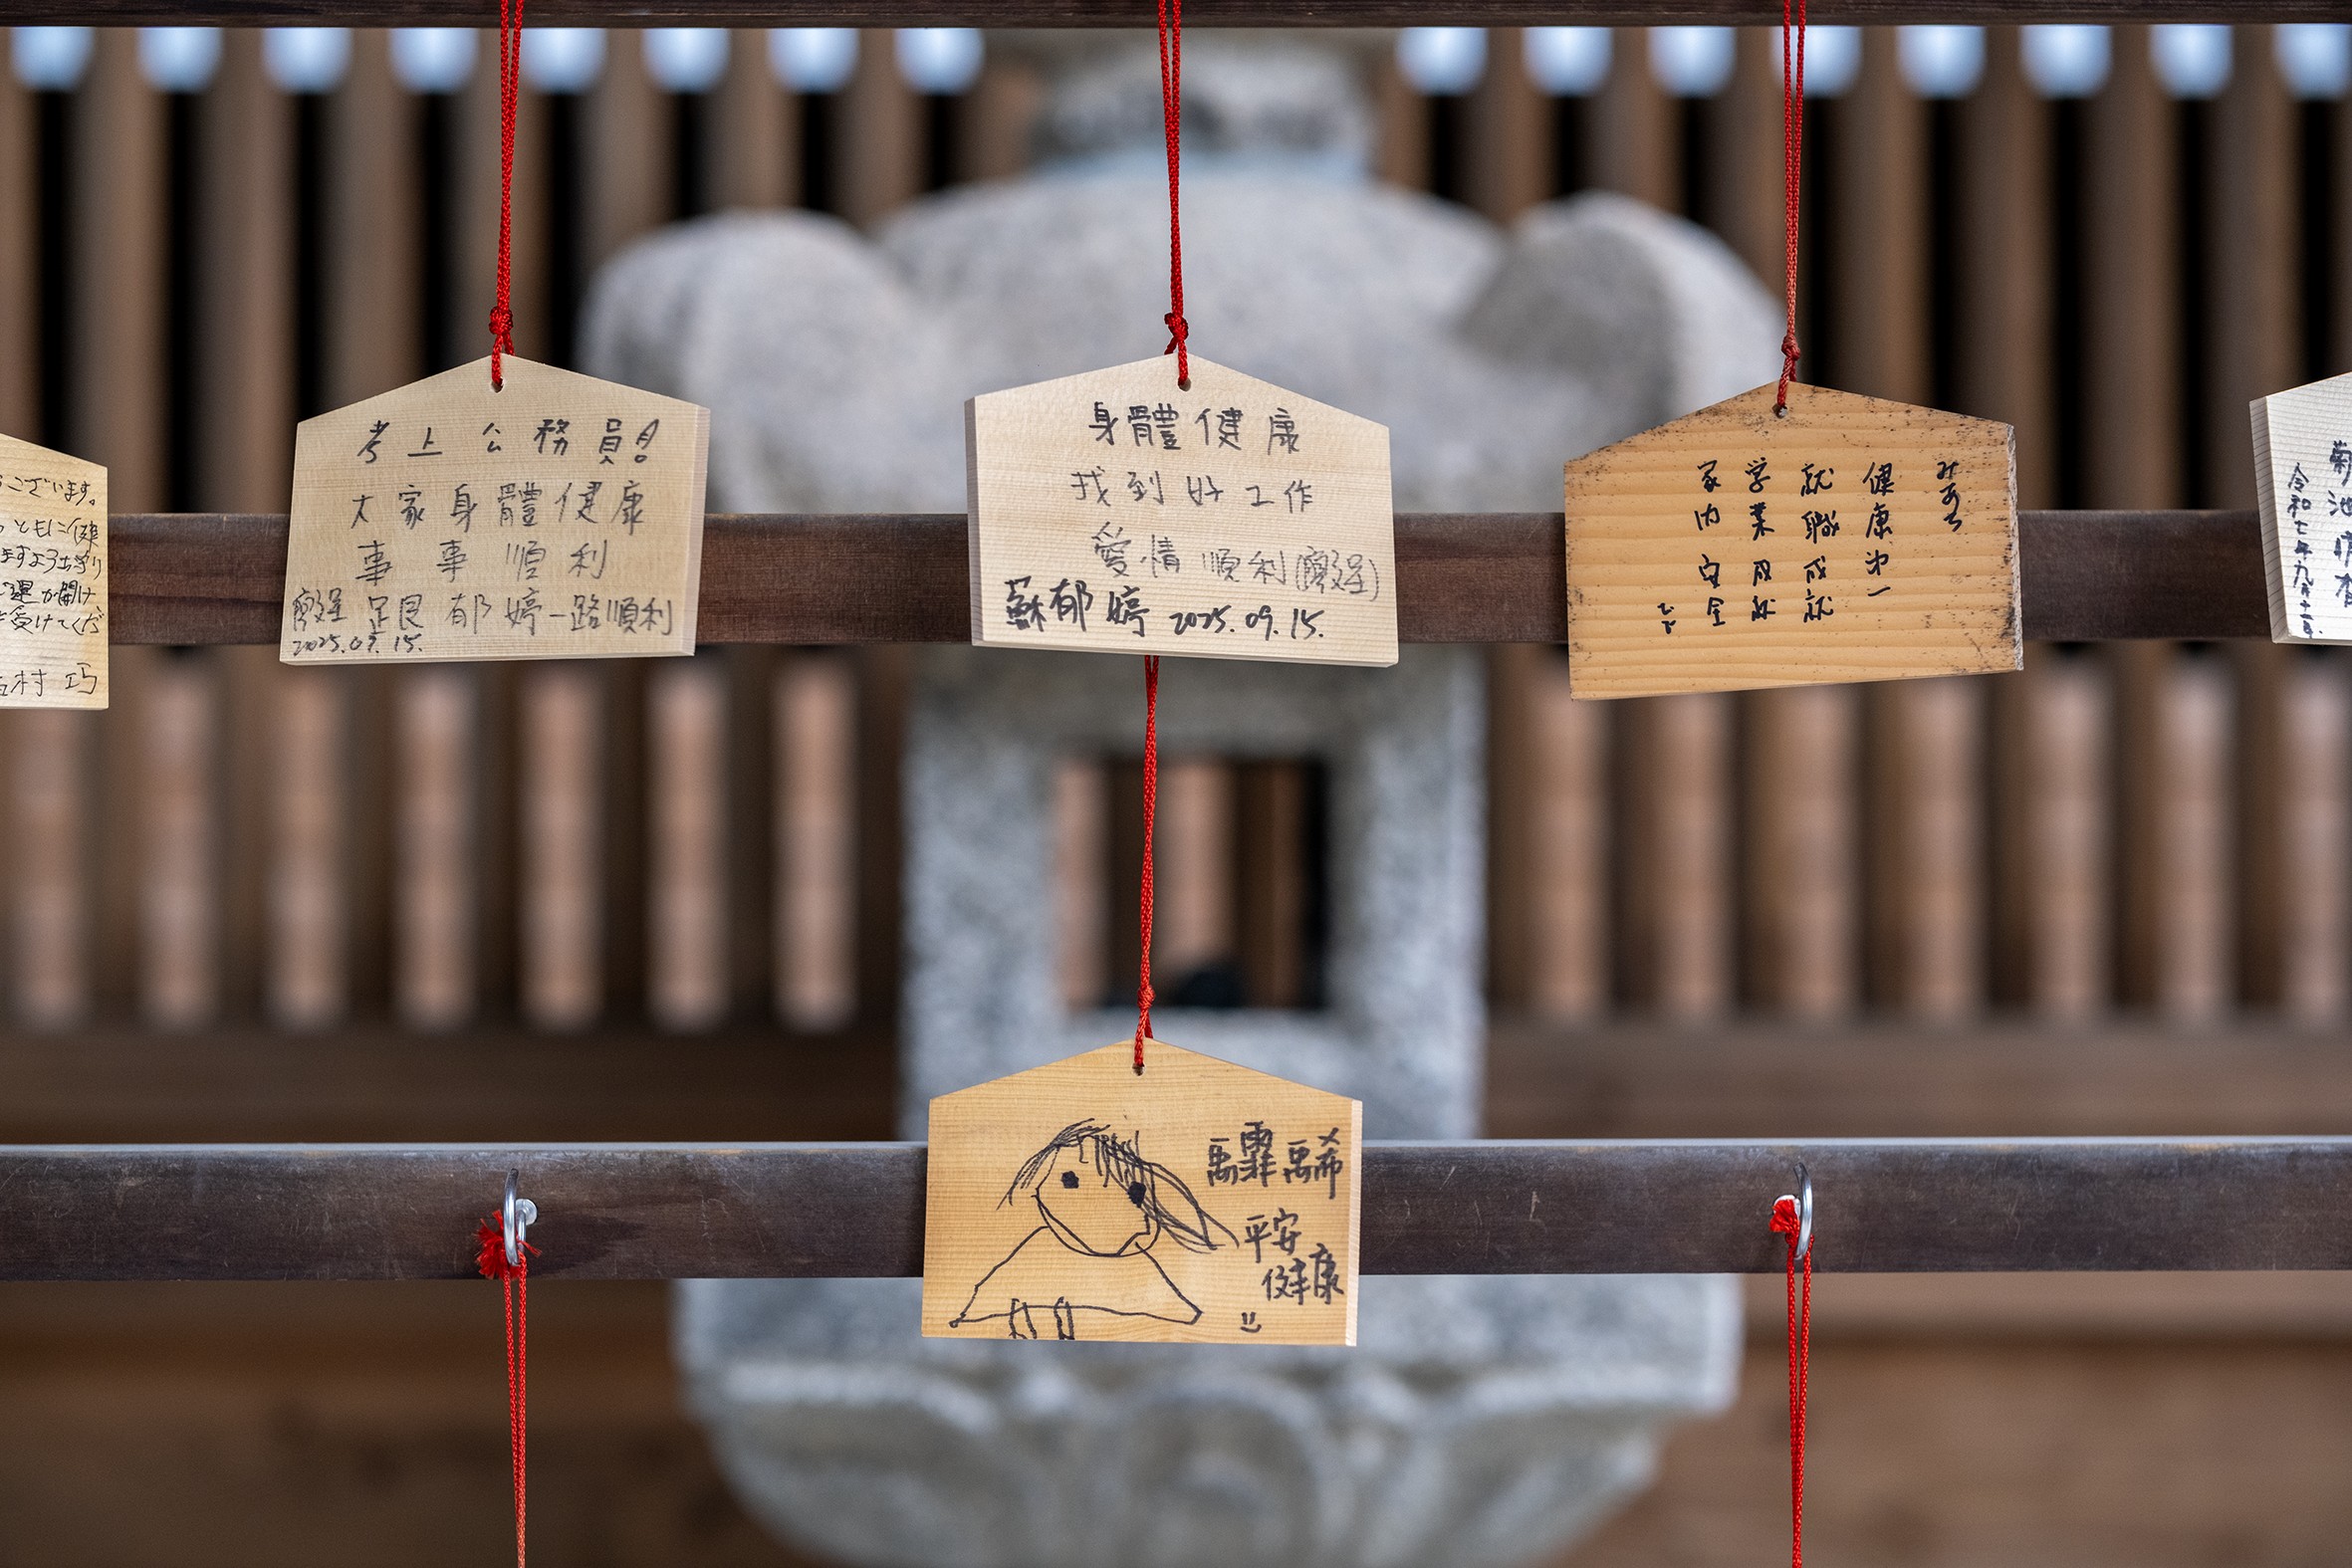 ございます。
ともに健
ますようお守り
運が開け
受けてくだ
村 巧
考上公務員!
大家身體健康
事事順利
郁婷一路順利
2025.09.15.
身體健康
找到好工作
愛情順利
蘇郁婷 2025.09.15.
健康第一
就職成就
学業成就
家内安全
菊池
令和七年九月十
平安
健康